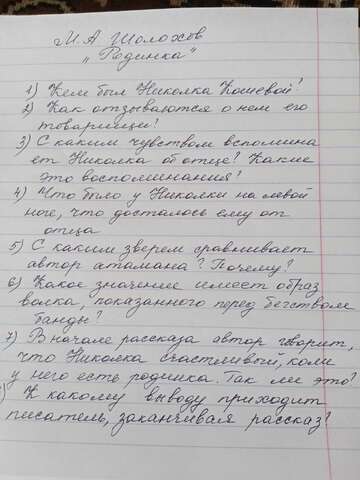 М. А. Шолохов
„Родинка“
1) Кем был Николка Кошевой?
2) Как отзываются о нем его
товарищи?
3) С каким чувством вспомина
ет Николка об отце? Какие
это воспоминания?
4) Что было у Николки на левой
ноге, что досталось ему от
отца
5) С каким зверем сравнивает
автор атамана? Почему?
6) Какое значение имеет образ
волка, показанного перед бегством
банды?
7) В начале рассказа автор говорит,
что Николка счастливый, коли
у него есть родинка. Так ли это?
) К какому выводу приходит
писатель, заканчивая рассказ?